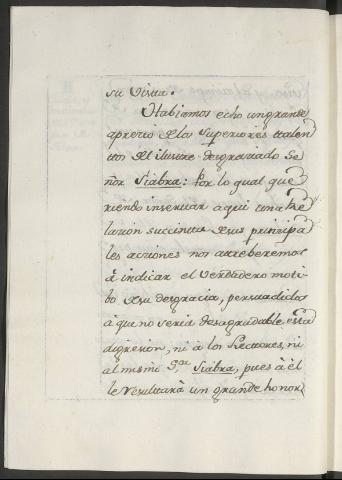 su Vista.
Habiamos echo un grande
aprecio de los Superiores talen
tos del ilustre desgraciado Se
ñor Siabra: Por lo qual que
riendo insertar aqui una Re
lacion succinta de sus principa
les acciones nos atreberemos
à indicar el Verdadero moti-
bo de su desgracia, persuadidos
à que no seria desagradable esta
digresion, ni à los Lectores, ni
al mismo S.or Siabra, pues à èl
le Resultarà un grande honor